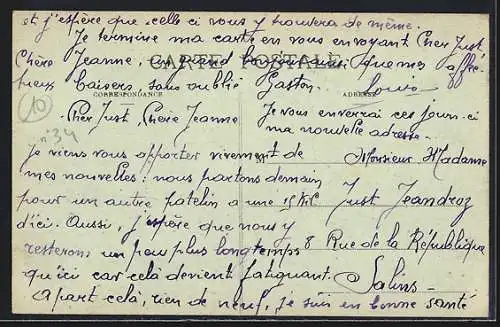 et j'espère que celle ci vous y trouvera de même.
Je termine ma carte en vous envoyant Cher Just,
Chère Jeanne, un grand bonjour ainsi que mes affec-
tueux baisers, sans oublié Gaston. Louis
CARTE POSTALE
CORRESPONDANCE
ADRESSE
10
n° 34
Cher Just, Chère Jeanne
Je viens vous apporter vivement de
mes nouvelles : nous partons demain
pour un autre patelin a une 15 Kil.
d'ici. Aussi, j'espère que nous y
resterons un peu plus longtemps
qu'ici car celà devient fatiguant.
Apart celà, rien de neuf, je suis en bonne santé
Je vous enverrai ces jours-ci
ma nouvelle adresse.
Monsieur Madame
Just Jeandroz
8 Rue de la République
Salins